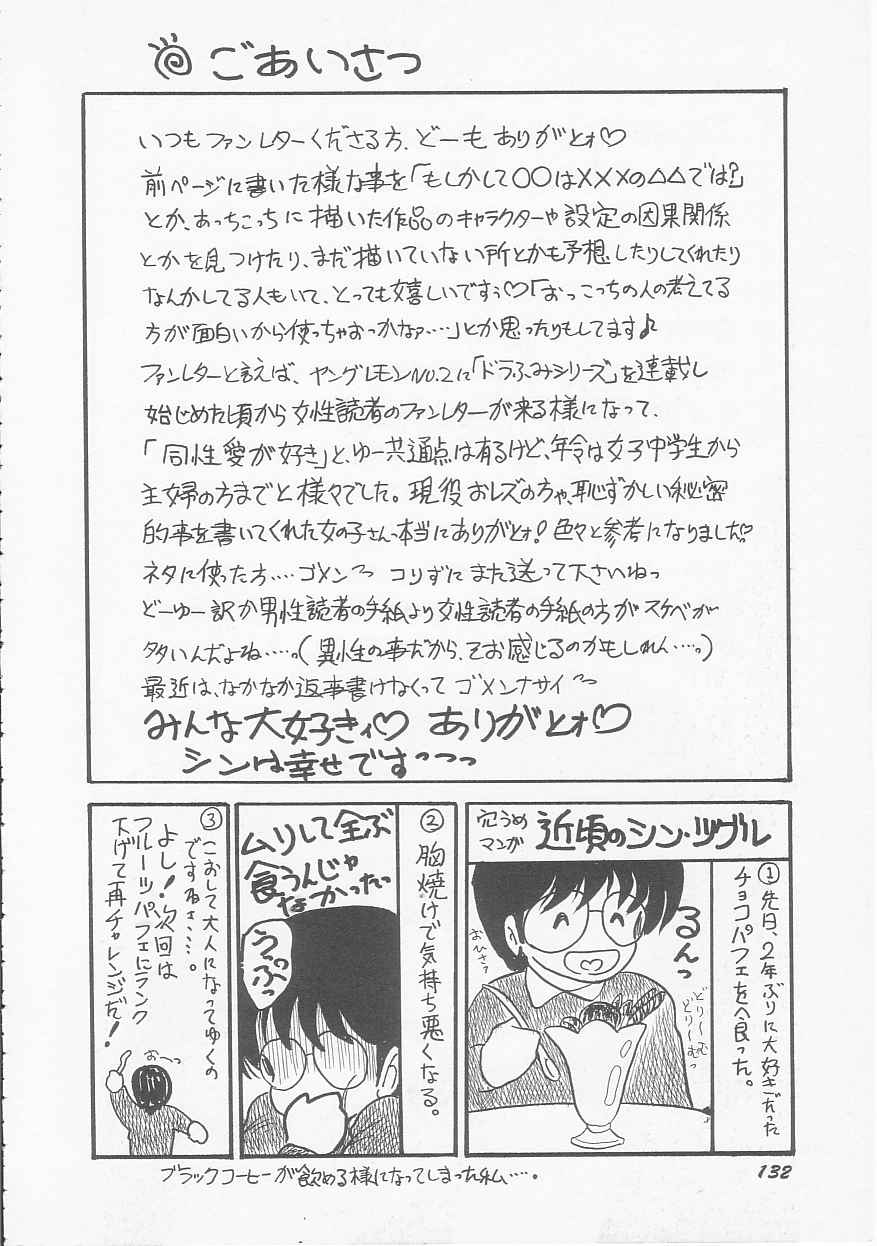 ごあいさつ
いつもファンレターくださる方、どーもありがとォ♡
前ページに書いた様な事を「もしかして〇〇は×××の△△では?」
とか、あっちこっちに描いた作品のキャラクターや設定の因果関係
とかを見つけたり、まだ描いていない所とかも予想したりしてくれたり
なんかしてる人もいて、とっても嬉しいですぅ♡「おっこっちの人の考えてる
方が面白いから使っちゃおっかなァ……」とか思ったりもしてます♪
ファンレターと言えば、ヤングレモンNO.2に「ドラふみシリーズ」を連載し
始じめた頃から女性読者のファンレターが来る様になって、
「同性愛が好き」と、ゆー共通点は有るけど、年令は女子中学生から
主婦の方までと様々でした。現役おレズの方や、恥ずかしい秘密
的事を書いてくれた女の子さんっ本当にありがとォ!色々と参考になりました♡
ネタに使った方‥‥ゴメン〜 コリずにまた送って下さいねっ
どーゆー訳か男性読者の手紙より女性読者の手紙の方がスケベが
多いんだよね……。(異性の事だから、そお感じるのかもしれん……。)
最近は、なかなか返事書けなくって ゴメンナサイ〜
みんな大好きィ♡ ありがとォ♡
シンは幸せですっっっ
穴うめ
マンガ
近頃のシン・ツグル
①先日、2年ぶりに大好きだった
チョコパフェを食った。
るんっ
おひさァ
どり〜む
どり〜むっ
②胸焼けで気持ち悪くなる。
ムリして全ぶ
食うんじゃ
なかったっ
うっぷっ
③こおして大人になってゆくの
ですねェ……。
よし!次回は
フルーツパフェにランク
下げて再チャレンジだ!
お〜っ
ブラックコーヒーが飲める様になってしまった私‥‥。
132